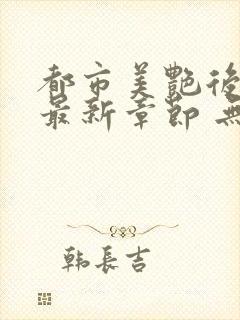 都市美艷後
最新章節 無
韩長吉